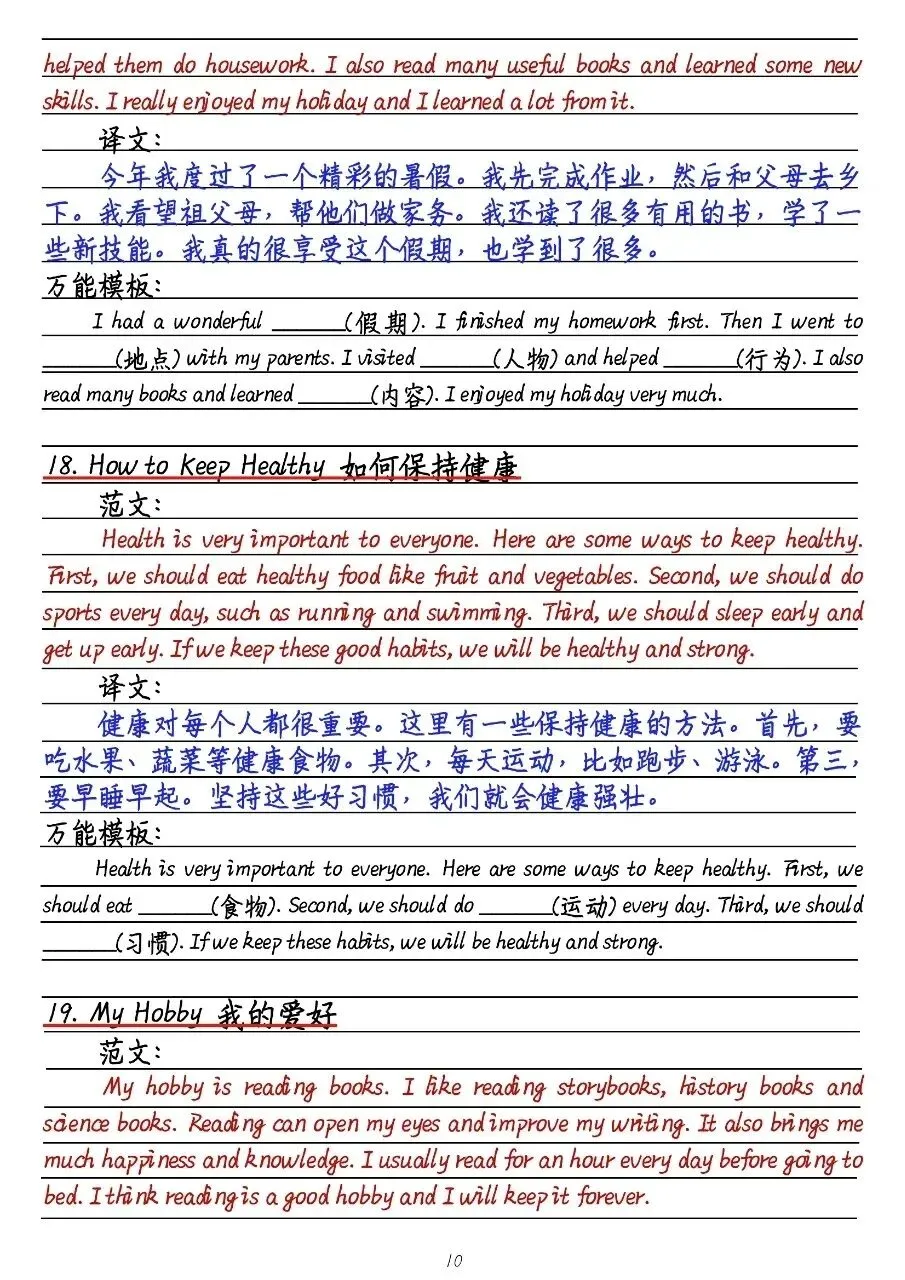 helped them do housework. I also read many useful books and learned some new
skills. I really enjoyed my holiday and I learned a lot from it.
译文：
今年我度过了一个精彩的暑假。我先完成作业，然后和父母去乡
下。我看望祖父母，帮他们做家务。我还读了很多有用的书，学了一
些新技能。我真的很享受这个假期，也学到了很多。
万能模板：
I had a wonderful ______(假期). I finished my homework first. Then I went to
______(地点) with my parents. I visited ______(人物) and helped ______(行为). I also
read many books and learned ______(内容). I enjoyed my holiday very much.
18. How to Keep Healthy 如何保持健康
范文：
Health is very important to everyone. Here are some ways to keep healthy.
First, we should eat healthy food like fruit and vegetables. Second, we should do
sports every day, such as running and swimming. Third, we should sleep early and
get up early. If we keep these good habits, we will be healthy and strong.
译文：
健康对每个人都很重要。这里有一些保持健康的方法。首先，要
吃水果、蔬菜等健康食物。其次，每天运动，比如跑步、游泳。第三，
要早睡早起。坚持这些好习惯，我们就会健康强壮。
万能模板：
Health is very important to everyone. Here are some ways to keep healthy. First, we
should eat ______(食物). Second, we should do ______(运动) every day. Third, we should
______(习惯). If we keep these habits, we will be healthy and strong.
19. My Hobby 我的爱好
范文：
My hobby is reading books. I like reading storybooks, history books and
science books. Reading can open my eyes and improve my writing. It also brings me
much happiness and knowledge. I usually read for an hour every day before going to
bed. I think reading is a good hobby and I will keep it forever.
10